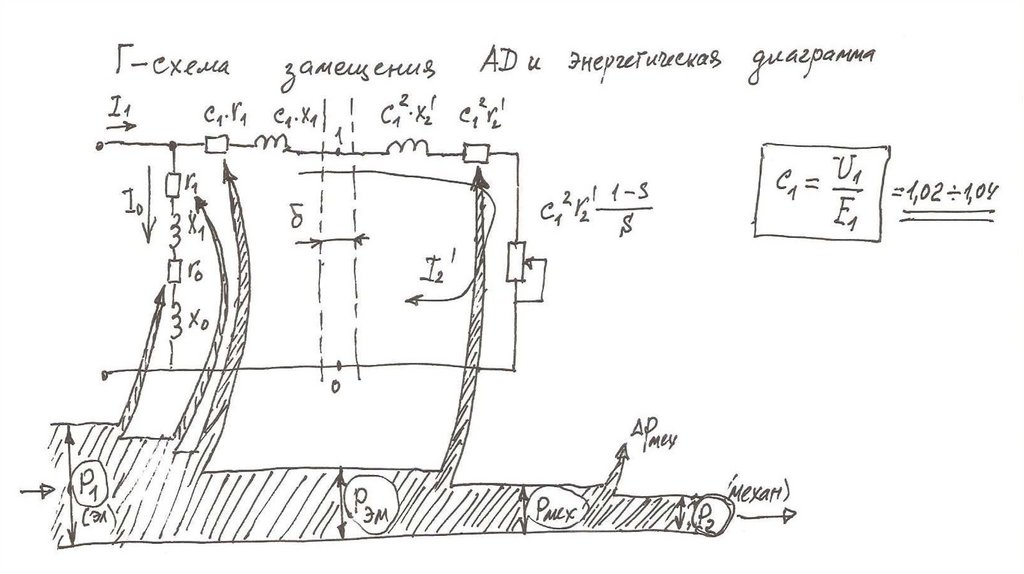 Г-схема замещения АD и энергетическая диаграмма
I₁ c₁·r₁ c₁·x₁ 1 c₁²·x₂' c₁²r₂'
I₀ r₁
x₁
r₀
x₀
δ
I₂'
c₁²r₂' (1-S)/S
0
c₁ = U₁/E₁ = 1,02÷1,04
P₁
(эл)
Pэм
Pмех
ΔPмех
P₂
(механ)